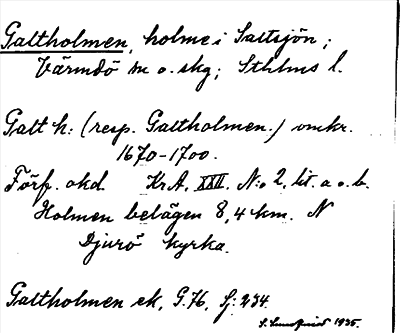 Galtholmen, holme i Saltsjön;
Värmdö sn o. skg; Sthlms l.
Galt h: (resp. Galtholmen.) omkr.
1670-1700.
Förf. okd. Kr A, XXII. N:o 2, lit. a o. b.
Holmen belägen 8,4 km. N
Djurö kyrka.
Galtholmen ek, G.76, Sj: 234
1935.